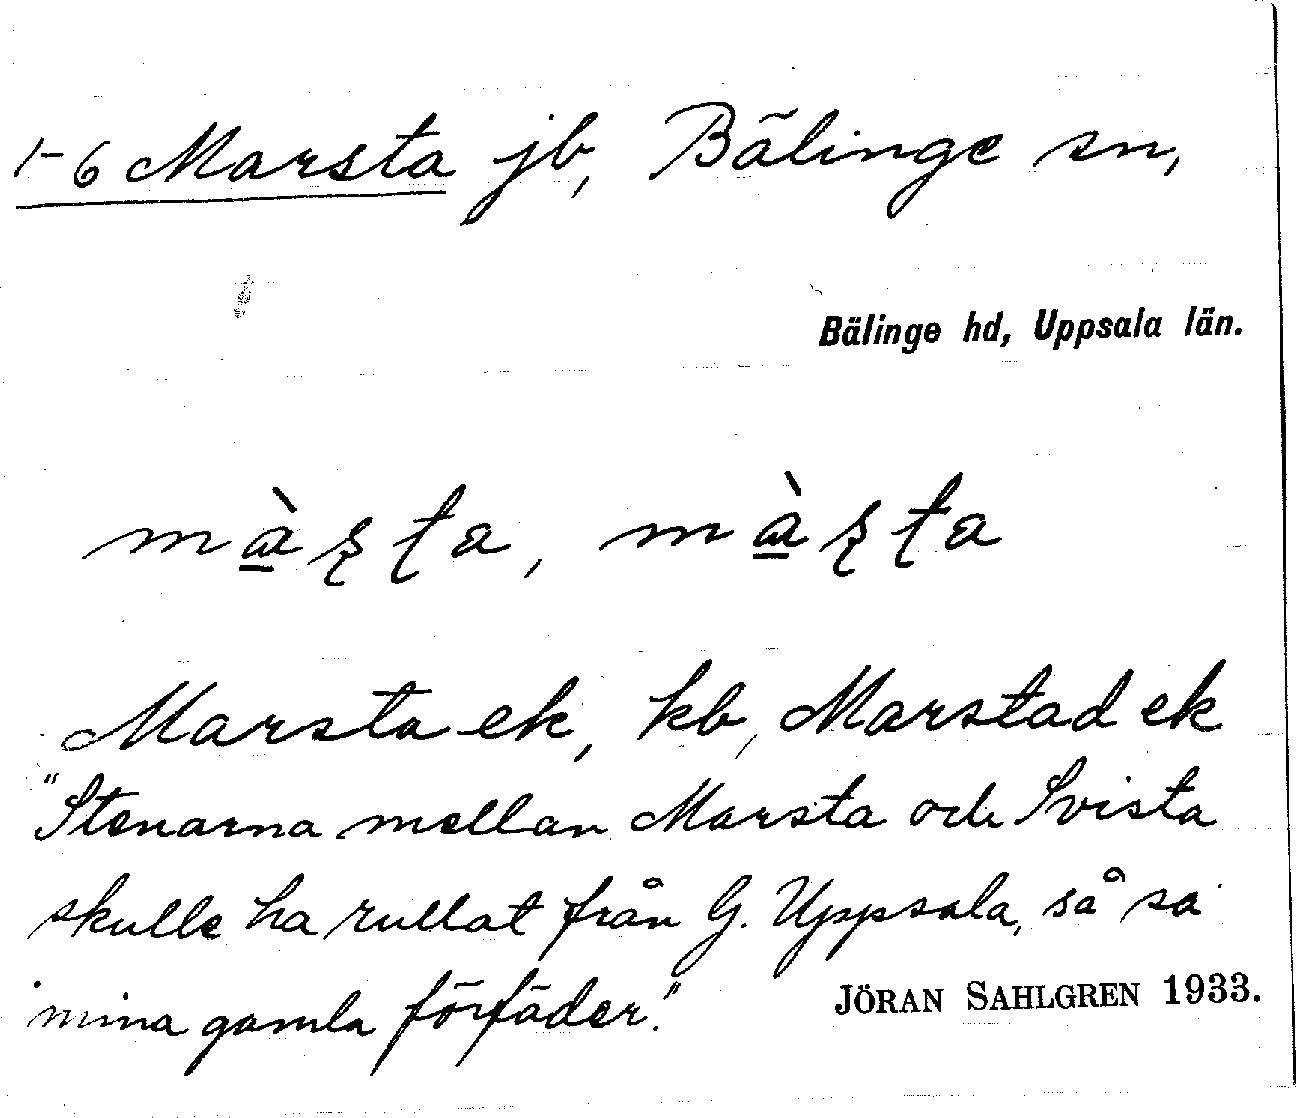 1-6 Marsta jb, Bälinge sn,
Bälinge hd, Uppsala län.
mà̲ʂʈa, mà̲ʂʈa
Marsta ek, kb, Marstad ek
"Stenarna mellan Marsta och Svista
skulle ha rullat från G. Uppsala, så sa
mina gamla förfäder."
JÖRAN SAHLGREN 1933.